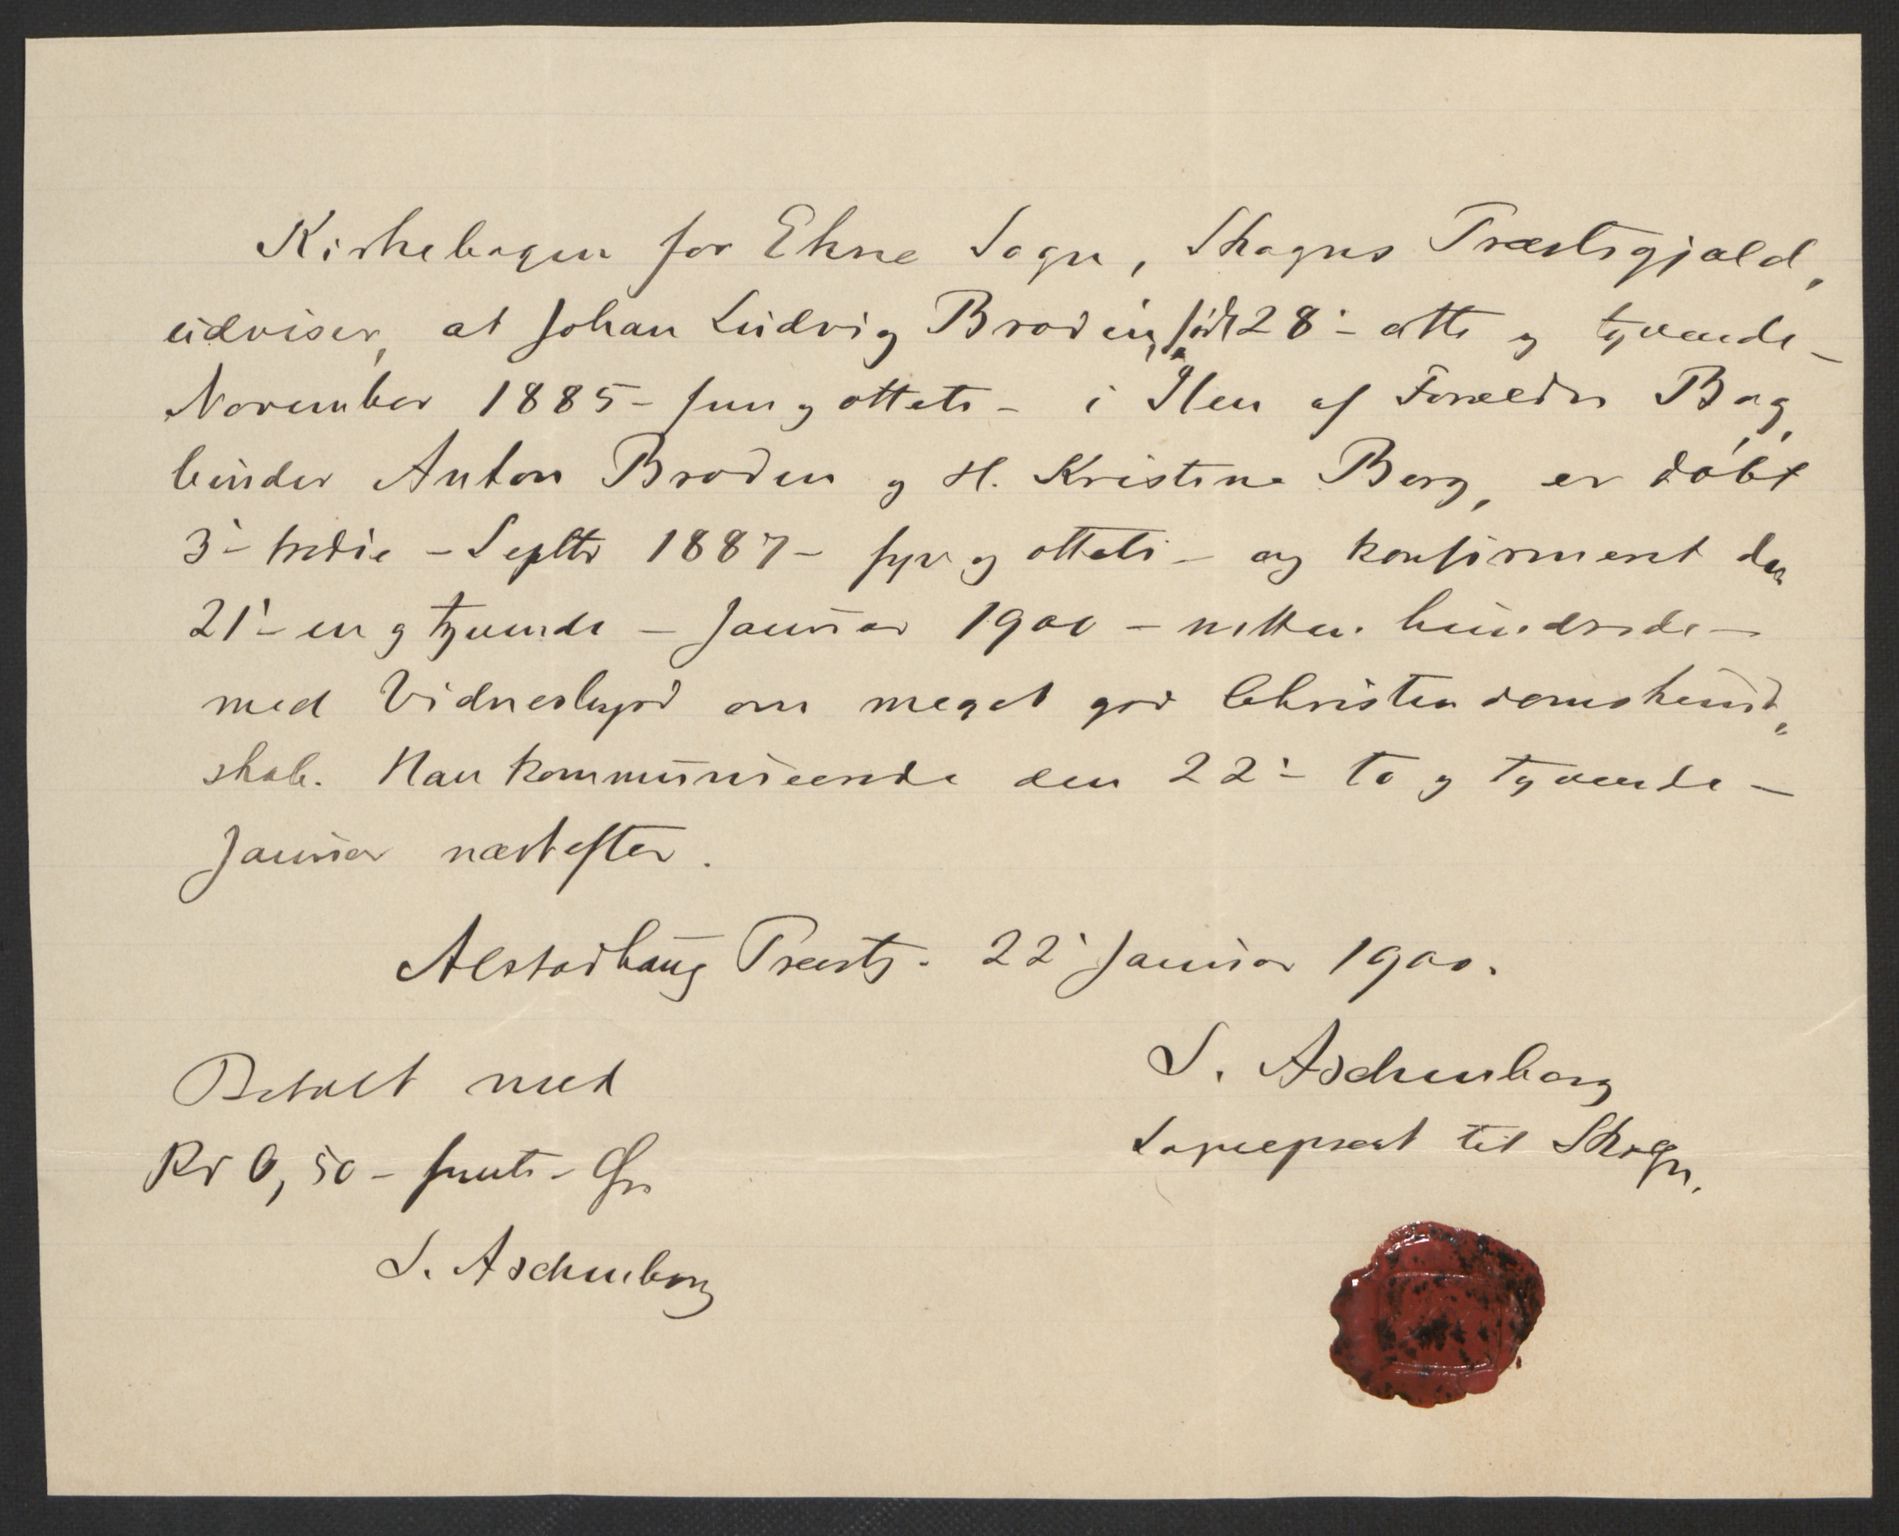 Kirkebogen for Ekne Sogn, Skogns Præstegjæld,
udviser, at Johan Ludvig Brodin, født 28' - otte og tyvende -
November 1885 - fem og otteti - i Ilen af Forældre Bog,,
binder Anton Broden og H. Kristine Berg, er døbt
3' - tredie - Septbr 1887 - syv og otteti - og konfirmeret den
21' - en og tyvende - Januar 1900 - nitten hundrede -
med Vidnesbyrd om meget god Christendomskund,,
skab. Han kommunicerede den 22' - to og tyvende -
Januar næstefter.
Alstadhaug Præstg. 22' Januar 1900.
Betalt med
Kr 0,50 - femti - Øre
S. Aschenberg
S. Aschenberg
Sognepræst til Skogn.